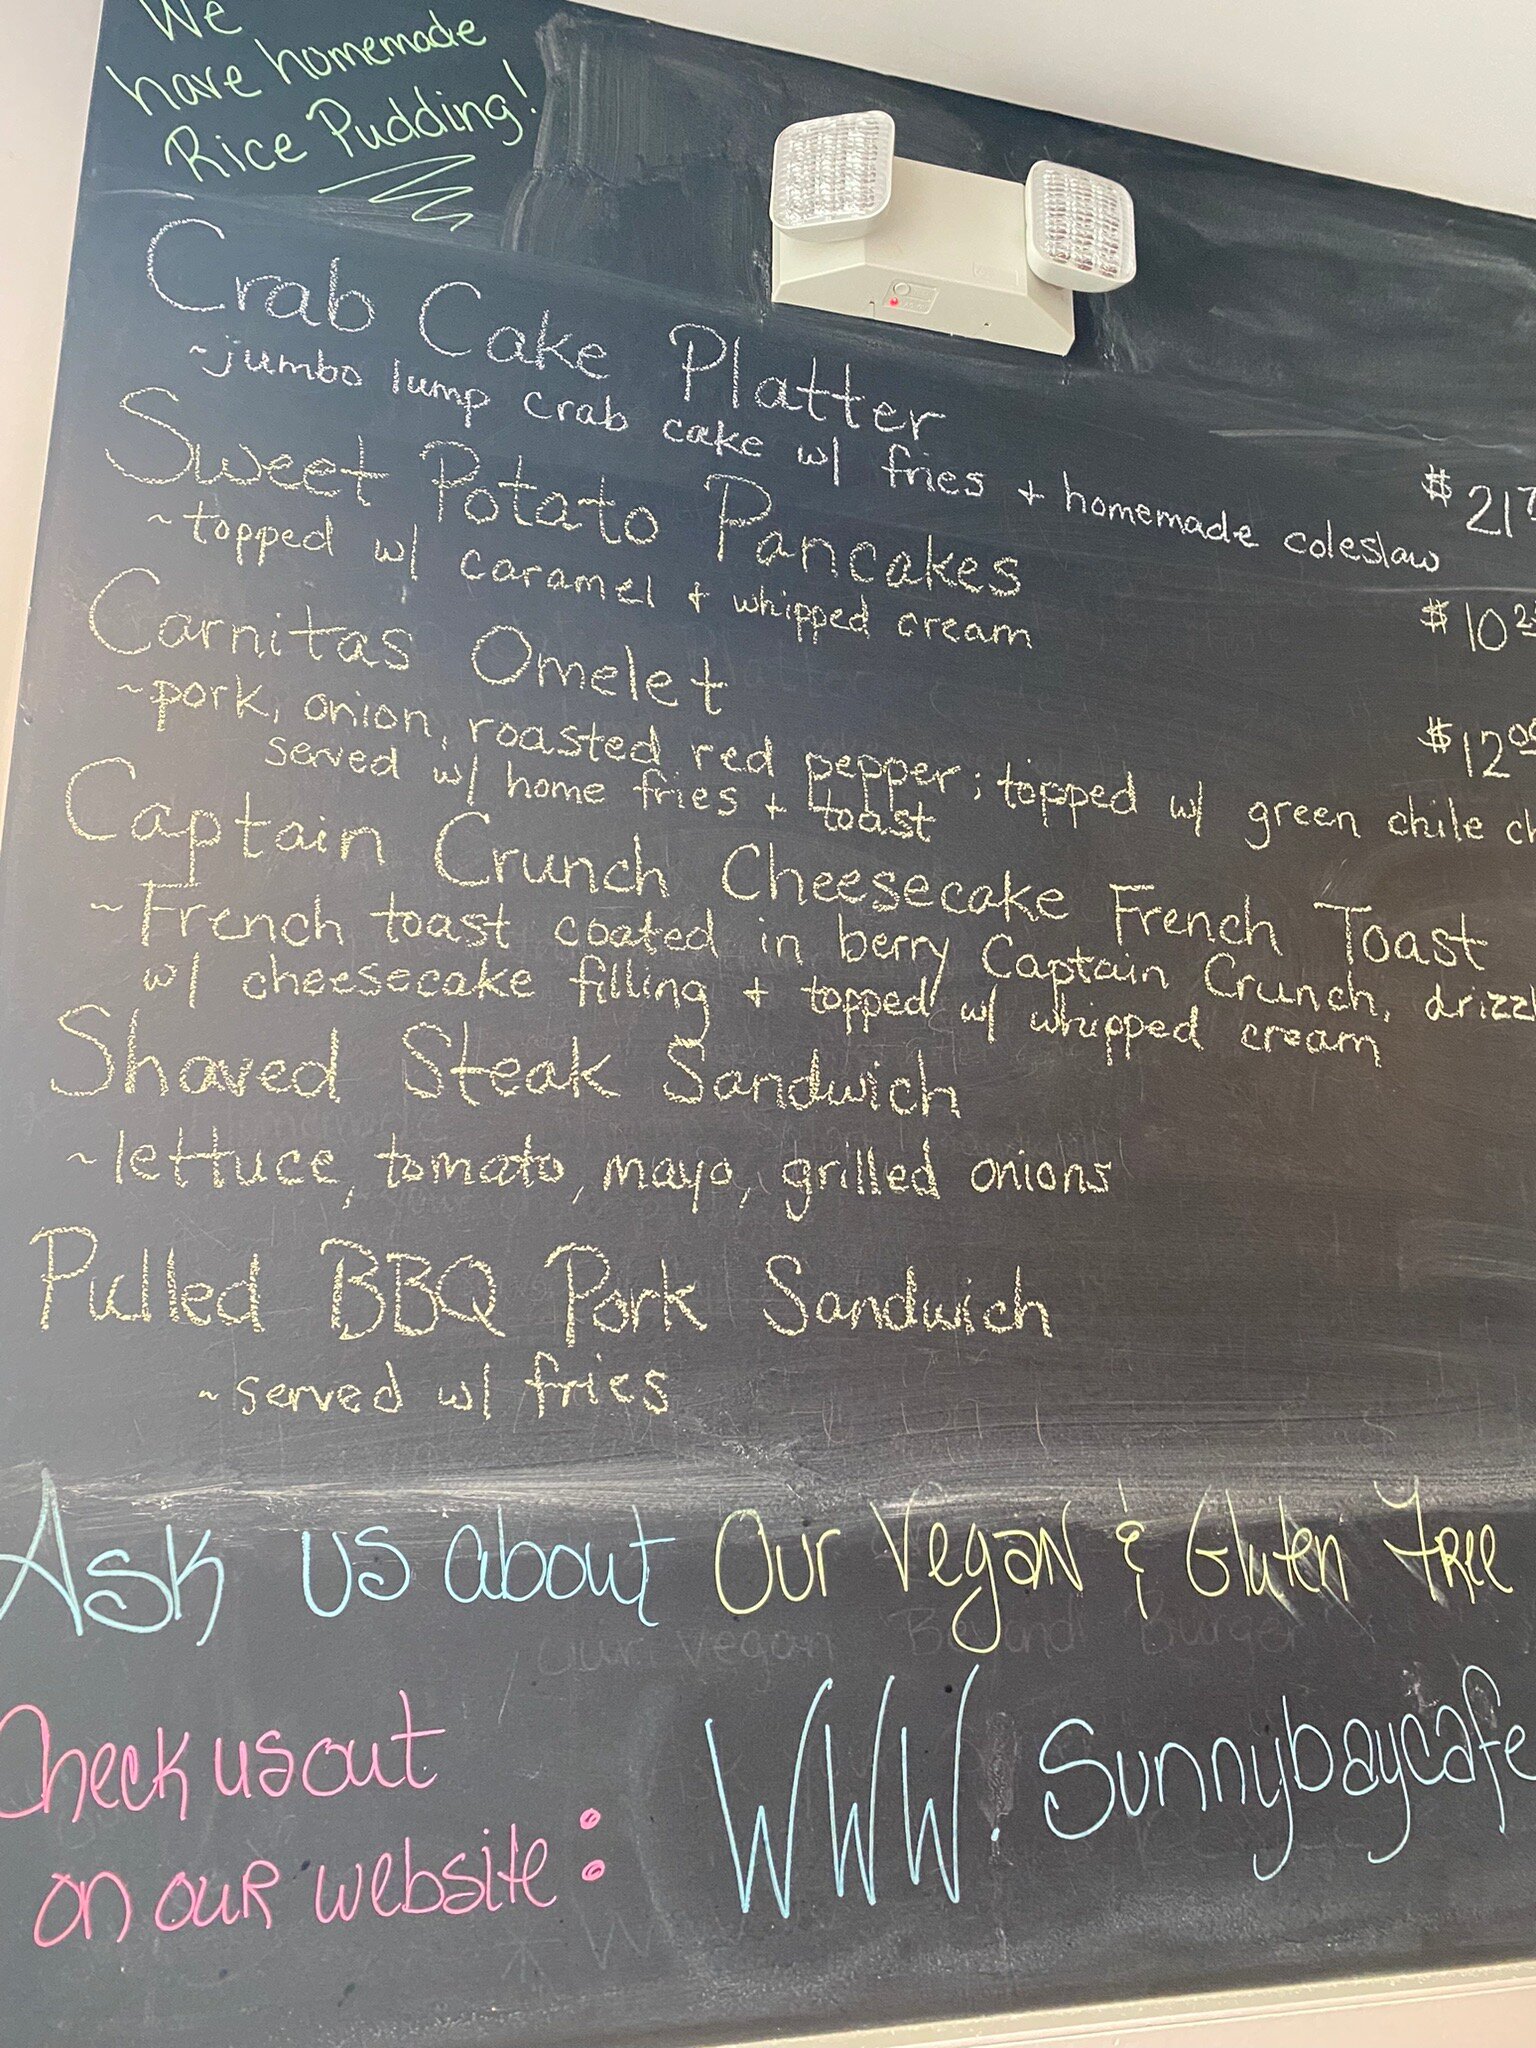 We
have homemade
Rice Pudding!
Crab Cake Platter
~jumbo lump crab cake w/ fries + homemade coleslaw $21
Sweet Potato Pancakes
~topped w/ caramel + whipped cream $10
Carnitas Omelet
~pork, onion, roasted red pepper; topped w/ green chile $12
served w/ home fries + toast
Captain Crunch Cheesecake French Toast
~French toast coated in berry Captain Crunch, drizzl
w/ cheesecake filling + topped w/ whipped cream
Shaved Steak Sandwich
~lettuce, tomato, mayo, grilled onions
Pulled BBQ Pork Sandwich
~served w/ fries
Ask us about Our Vegan & Gluten Free
Our Vegan Beyond Burger
Check us out
on our website:
WWW.Sunnybaycafe